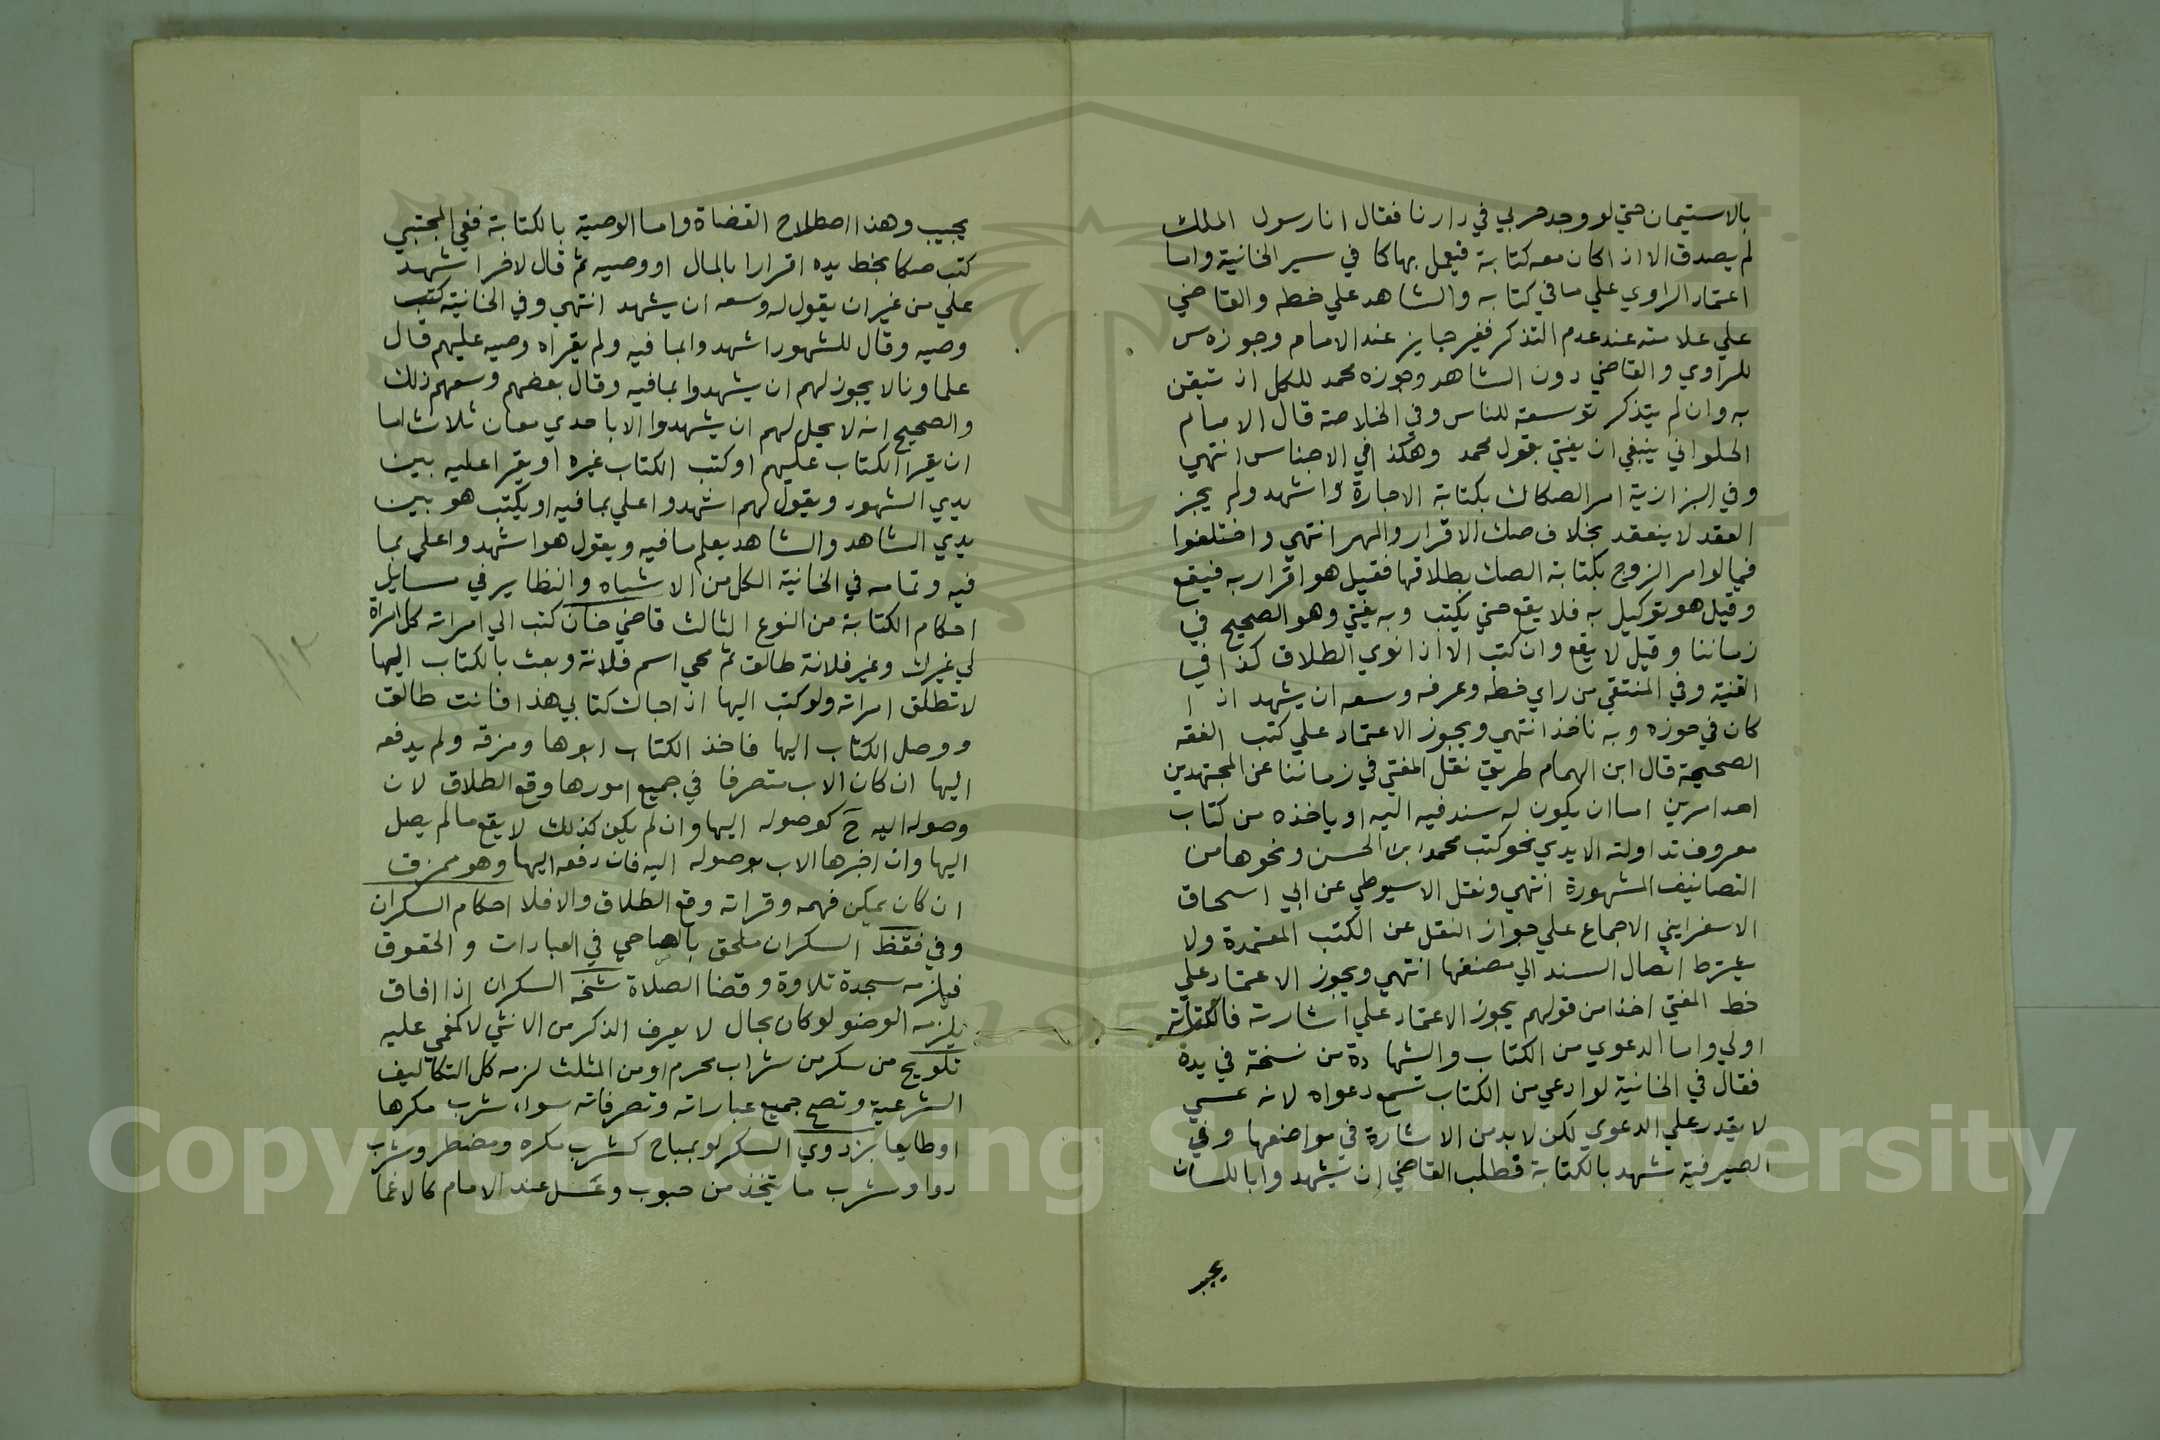 بالاستيمان حتي لو وجد حربي في دارنا فقال انا رسول الملك
لم يصدق الا اذا كان معه كتابة فيعمل بها كما في سير الخانية واما
اعتماد الراوي علي ما في كتابه والشاهد علي خطه والقاضي
علي علامته عند عدم التذكر فغير جايز عند الامام وجوزه س
للراوي والقاضي دون الشاهد وجوزه محمد للكل ان تيقن
به وان لم يتذكر توسعة للناس وفي الخلاصة قال الامام
الحلواني ينبغي ان يفتي بقول محمد وهكذا في الاجناس انتهي
وفي البزازية امر الصكاك بكتابة الاجارة واشهد ولم يجز
العقد لا ينعقد بخلاف صك الاقرار والمهر انتهي واختلفوا
فيما لو امر الزوج بكتابة الصك بطلاقها فقيل هو اقرار به فيقع
وقيل هو توكيل به فلا يقع حتي يكتب وبه يفتي وهو الصحيح في
زماننا وقيل لا يقع وان كتب الا اذا نوي الطلاق كذا في
القنية وفي المنتقي من راي خطه وعرفه وسعه ان يشهد اذ ا
كان في حوزه وبه ناخذ انتهي ويجوز الاعتماد علي كتب الفقه
الصحيحة قال ابن الهمام طريق نقل المفتي في زماننا عن المجتهدين
احد امرين اما ان يكون له سند فيه اليه او ياخذه من كتاب
معروف تداولته الايدي نحو كتب محمد ابن الحسن ونحوها من
التصانيف المشهورة انتهي ونقل الاسيوطي عن ابي اسحاق
الاسفرايني الاجماع علي جواز النقل عن الكتب المعتمدة ولا
يشترط اتصال السند الي مصنفها انتهي ويجوز الاعتماد علي
خط المفتي اخذا من قولهم يجوز الاعتماد علي اشارته فالكتابة
اولي واما الدعوي من الكتاب والشهادة من نسخة في يده
فقال في الخانية لو ادعي من الكتاب تسمع دعواه لانه عسي
لا يقدر علي الدعوي لكن لا بد من الاشارة في مواضعها وفي
الصيرفية شهد بالكتابة فطلب القاضي ان يشهد وا باللسان
يجيب
يجيب وهذا اصطلاح القضاة واما الوصية بالكتابة ففي المجتبي
كتب صكا بخط يده اقرارا بالمال او وصيه ثم قال لاخر اشهد
علي من غير ان يقول له وسعه ان يشهد انتهي وفي الخانية كتب
وصيه وقال للشهود اشهدوا بما فيه ولم يقراه وصيه عليهم قال
علماونا لا يجوز لهم ان يشهدوا بما فيه وقال بعضهم وسعهم ذلك
والصحيح انه لا يحل لهم ان يشهدوا الا باحدي معان ثلاث اما
ان يقرا الكتاب عليهم او كتب الكتاب غيره او يقرا عليه بين
يدي الشهود ويقول لهم اشهدوا علي بما فيه او يكتب هو بين
يدي الشاهد والشاهد يعلم ما فيه ويقول هو اشهدوا علي بما
فيه وتمامه في الخانية الكل من الاشباه والنظاير في مسايل
احكام الكتابة من النوع الثالث قاضي خان كتب الي امراته كل امراة
لي غيرك وغير فلانة طالق ثم محي اسم فلانة وبعث بالكتاب اليها
لا تطلق امراته ولو كتب اليها اذا جاك كتابي هذا فانت طالق
ووصل الكتاب اليها فاخذ الكتاب ابوها ومزقه ولم يدفعه
اليها ان كان الاب متصرفا في جميع امورها وقع الطلاق لان
وصوله اليه ح كوصوله اليها وان لم يكن كذلك لا يقع ما لم يصل
اليها وان اخبرها الاب بوصوله اليه فان دفعه اليها وهو ممزق
ان كان يمكن فهمه وقراته وقع الطلاق والا فلا احكام السكران
وفي فقظ السكران ملحق بالصاحي في العبارات والحقوق
فيلزمه سجدة تلاوة وقضا الصلاة شخه السكران اذا افاق
يلزمه الوضو لو كان بحال لا يعرف الذكر من الانثي لا كمغمي عليه
تلويح من سكر من شراب محرم او من المثلث لزمه كل التكاليف
الشرعية وتصح جميع عباراته وتصرفاته سواء شرب مكرها
او طايعا بزدوي السكر لو بمباح كشرب مكره ومضطر وشرب
دوا وشرب ما يتخذ من حبوب وعسل عند الامام كالاغما
Copyright © King Saud University
1957